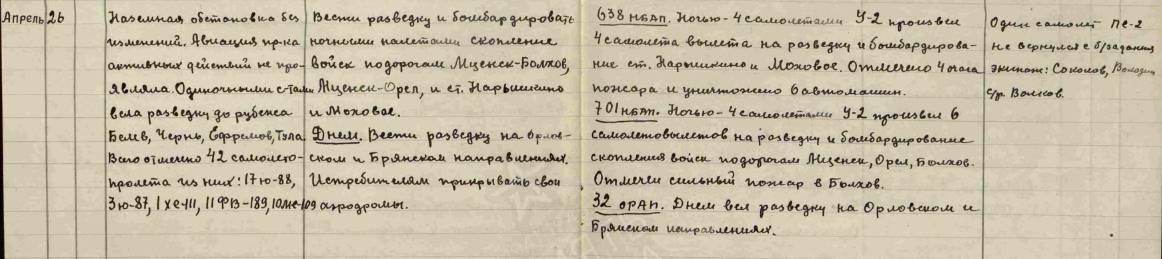 Апрель 26
Наземная обстановка без
изменений. Авиация пр-ка
активных действий не про-
являла. Одиночными с-тами
вела разведку до рубежа
Белев, Чернь, Ефремов, Тула
Всего отмечено 42 самолето-
пролета из них: 17 ю-88,
3 ю-87, 1 хе-111, 11 ФВ-189, 10 ме-109
Вести разведку и бомбардировать
ночными налетами скопление
войск по дорогам Мценск-Болхов,
Мценск-Орел, и ст. Нарышкино
и Моховое.
Днем. Вести разведку на Орлов-
ском и Брянском направлениях.
Истребителям прикрывать свои
аэродромы.
638 НБАП. Ночью - 4 самолетами У-2 произвел
4 самолета вылета на разведку и бомбардирова-
ние ст. Нарышкино и Моховое. Отмечено 4 очага
пожара и уничтожено 6 автомашин.
701 НБАП. Ночью - 4 самолетами У-2 произвел 6
самолетовылетов на разведку и бомбардирование
скопления войск по дорогам Мценск, Орел, Болхов.
Отмечен сильный пожар в Болхов.
32 ОРАП. Днем вел разведку на Орловском и
Брянском направлениях.
Один самолет Пе-2
не вернулся с б/задания
экипаж: Соколов,
с/р. Волков.